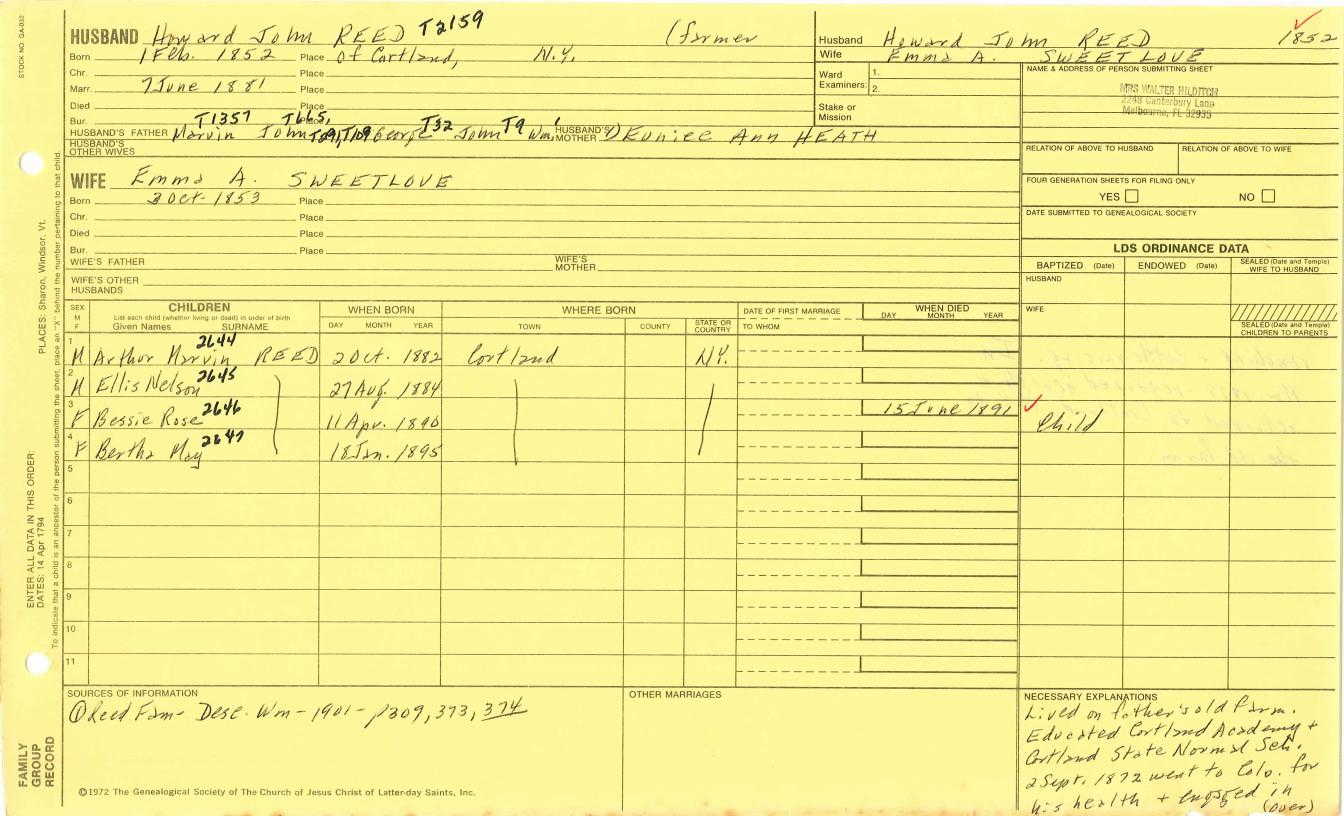 STOCK NO. GA-032
HUSBAND Howard John REED T2159 (farmer
Born 1 Feb. 1852 Place of Cortland, N.Y.
Chr. Place
Marr. 7 June 1881 Place
Died Place
Bur. Place
T1357 T665, T291, T109 T32 T9
HUSBAND'S FATHER Marvin John George John Wm.
HUSBAND'S MOTHER Eunice Ann HEATH
HUSBAND'S OTHER WIVES
Husband Howard John REED 1852
Wife Emma A. SWEETLOVE
Ward Examiners: 1.
2.
Stake or Mission
NAME & ADDRESS OF PERSON SUBMITTING SHEET
MRS WALTER HILDITCH
2248 Canterbury Lane
Melbourne, FL 32935
RELATION OF ABOVE TO HUSBAND RELATION OF ABOVE TO WIFE
FOUR GENERATION SHEETS FOR FILING ONLY
YES NO
DATE SUBMITTED TO GENEALOGICAL SOCIETY
WIFE Emma A. SWEETLOVE
Born 3 Oct. 1853 Place
Chr. Place
Died Place
Bur. Place
WIFE'S FATHER WIFE'S MOTHER
WIFE'S OTHER HUSBANDS
LDS ORDINANCE DATA
BAPTIZED (Date) ENDOWED (Date) SEALED (Date and Temple) WIFE TO HUSBAND
HUSBAND
WIFE
SEALED (Date and Temple) CHILDREN TO PARENTS
SEX M F
CHILDREN
List each child (whether living or dead) in order of birth
Given Names SURNAME
WHEN BORN
DAY MONTH YEAR
WHERE BORN
TOWN COUNTY STATE OR COUNTRY
DATE OF FIRST MARRIAGE
TO WHOM
WHEN DIED
DAY MONTH YEAR
1 M Arthur Marvin REED 2644 2 Oct. 1882 Cortland N.Y.
2 M Ellis Nelson 2645 27 Aug. 1884
3 F Bessie Rose 2646 11 Apr. 1890 15 June 1891 Child
4 F Bertha May 2647 18 Jan. 1895
5
6
7
8
9
10
11
SOURCES OF INFORMATION
① Reed Fam- Desc. Wm - 1901 - p309, 373, 374
OTHER MARRIAGES
NECESSARY EXPLANATIONS
Lived on father's old farm.
Educated Cortland Academy +
Cortland State Normal Sch.
2 Sept. 1872 went to Colo. for
his health + engaged in
(over)
©1972 The Genealogical Society of The Church of Jesus Christ of Latter-day Saints, Inc.
FAMILY GROUP RECORD
ENTER ALL DATA IN THIS ORDER:
DATES: 14 Apr 1794 PLACES: Sharon, Windsor, Vt.
To indicate that a child is an ancestor of the person submitting the sheet, place an "X" behind the number pertaining to that child.